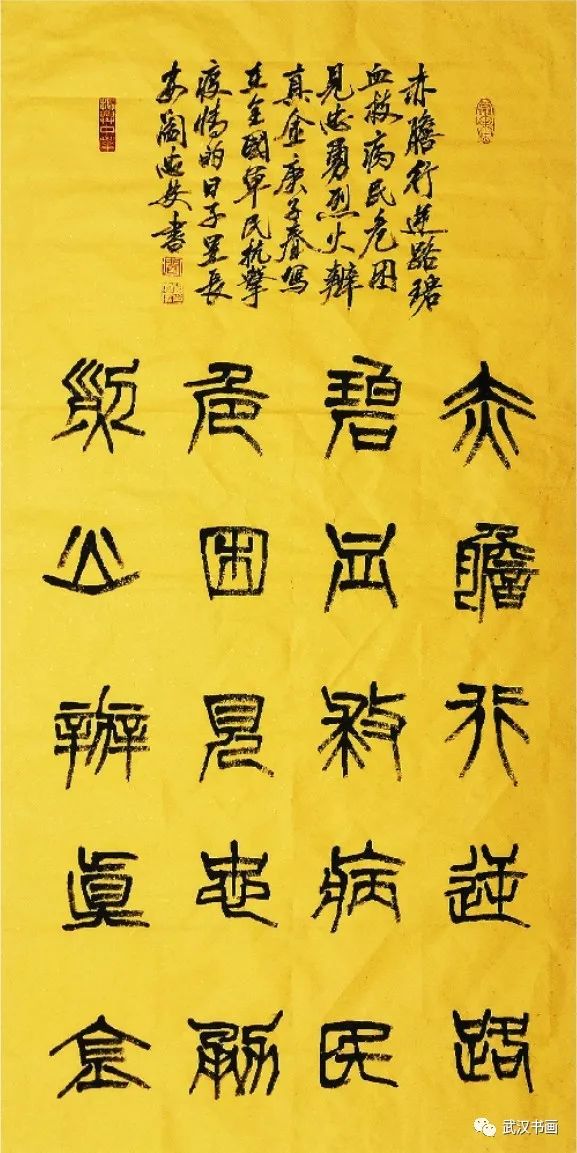 赤膽行逆路碧
血救病民危困
見忠勇烈火辨
真金庚子春寫
在全國軍民抗擊
疫情的日子里長
安閻 書
赤膽行逆路
碧血救病民
危困見忠勇
烈火辨眞金
武汉书画